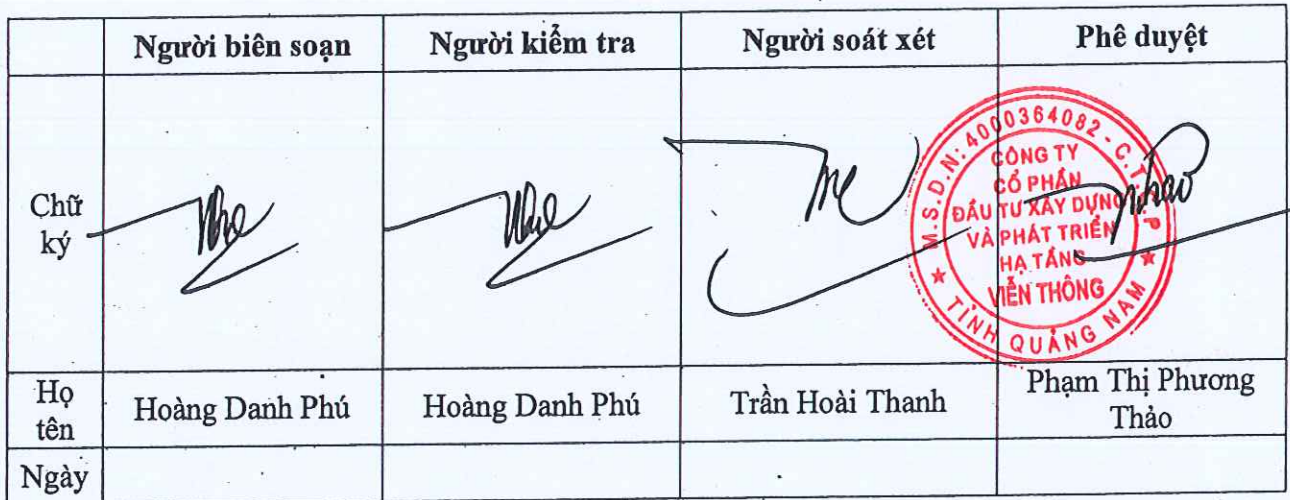 Người biên soạn Người kiểm tra Người soát xét Phê duyệt
Chữ
ký
M.S.D.N: 4000364082 - C.T.C.P
CÔNG TY
CỔ PHẦN
ĐẦU TƯ XÂY DỰNG
VÀ PHÁT TRIỂN
HẠ TẦNG
VIỄN THÔNG
TỈNH QUẢNG NAM
Thao
Họ
tên
Hoàng Danh Phú Hoàng Danh Phú Trần Hoài Thanh Phạm Thị Phương
Thảo
Ngày